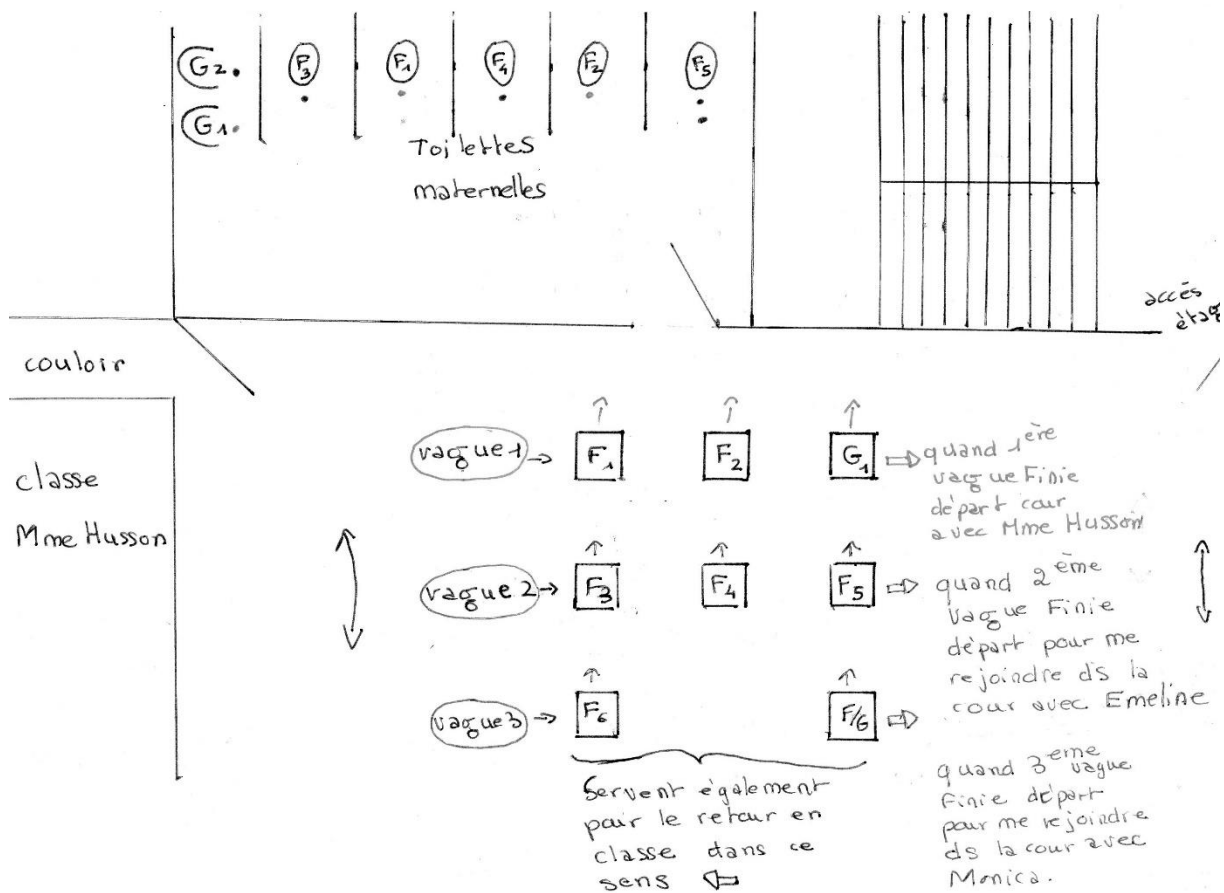 G2.
F3
F1
F4
F2
F5
G1.
Toilettes
maternelles
accès
étag
couloir
classe
Mme Husson
vague 1 → F1 F2 G1 ⇨ quand 1ère
vague Finie
départ cour
avec Mme Husson
vague 2 → F3 F4 F5 ⇨ quand 2ème
vague Finie
départ pour me
rejoindre ds la
cour avec Emeline
vague 3 → F6 F/G ⇨
quand 3eme vague
Finie départ
pour me rejoindre
ds la cour avec
Monica.
Servent également
pour le retour en
classe dans ce
sens ⇦